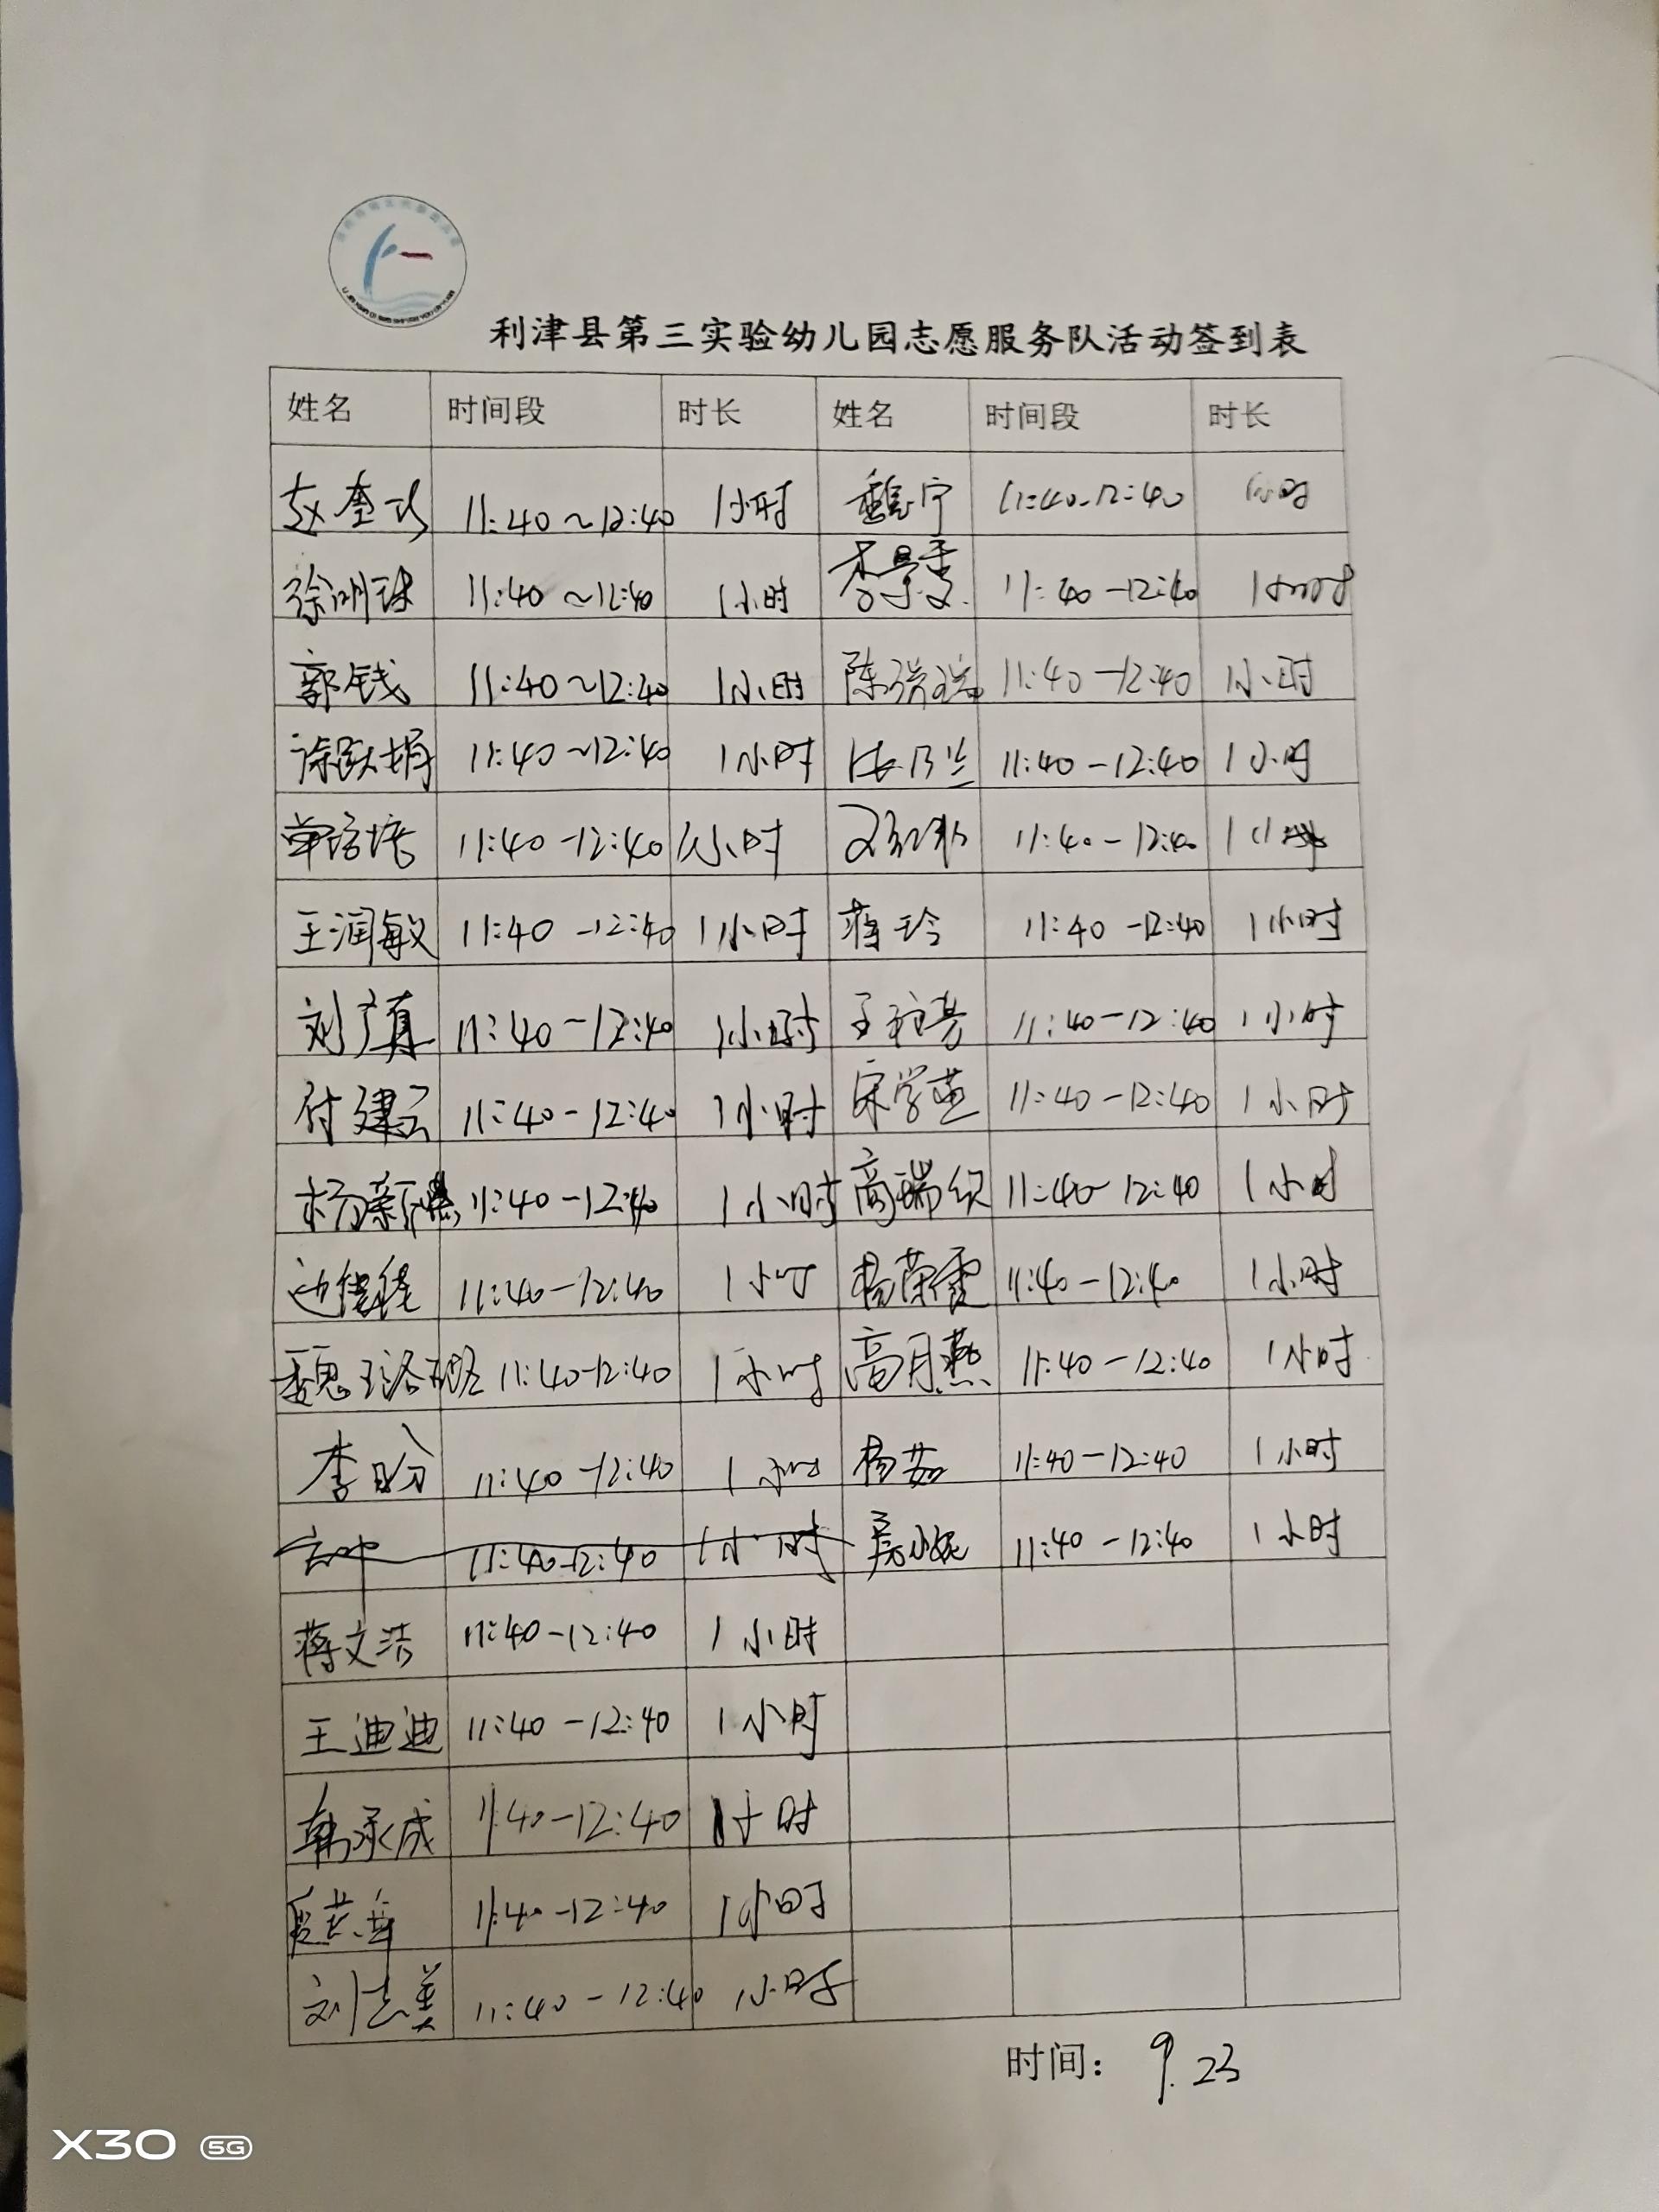 利津县第三实验幼儿园志愿服务队活动签到表
姓名 时间段 时长 姓名 时间段 时长
赵奎 11:40~12:40 1小时 魏宁 11:40-12:40 1小时
徐明珠 11:40~12:40 1小时 李景 11:40-12:40 1小时
郭钱 11:40~12:40 1小时 陈瑞瑞 11:40-12:40 1小时
徐跃娟 11:40~12:40 1小时 11:40-12:40 1小时
单培培 11:40-12:40 1小时 11:40-12:40 1
王润敏 11:40-12:40 1小时 蒋玲 11:40-12:40 1小时
刘广真 11:40-12:40 1小时 王 芳 11:40-12:40 1小时
付建云 11:40-12:40 1小时 宋学英 11:40-12:40 1小时
杨新 11:40-12:40 1小时 高瑞织 11:40-12:40 1小时
边佳佳 11:40-12:40 1小时 杨荣霞 11:40-12:40 1小时
魏珞珺 11:40-12:40 1小时 高月燕 11:40-12:40 1小时
李盼 11:40-12:40 1小时 杨茹 11:40-12:40 1小时
11:40-12:40 1小时 吴小妮 11:40-12:40 1小时
蒋文洁 11:40-12:40 1小时
王迪迪 11:40-12:40 1小时
韩承成 11:40-12:40 1小时
11:40-12:40 1小时
刘志美 11:40-12:40 1小时
时间: 9.23
X30 5G